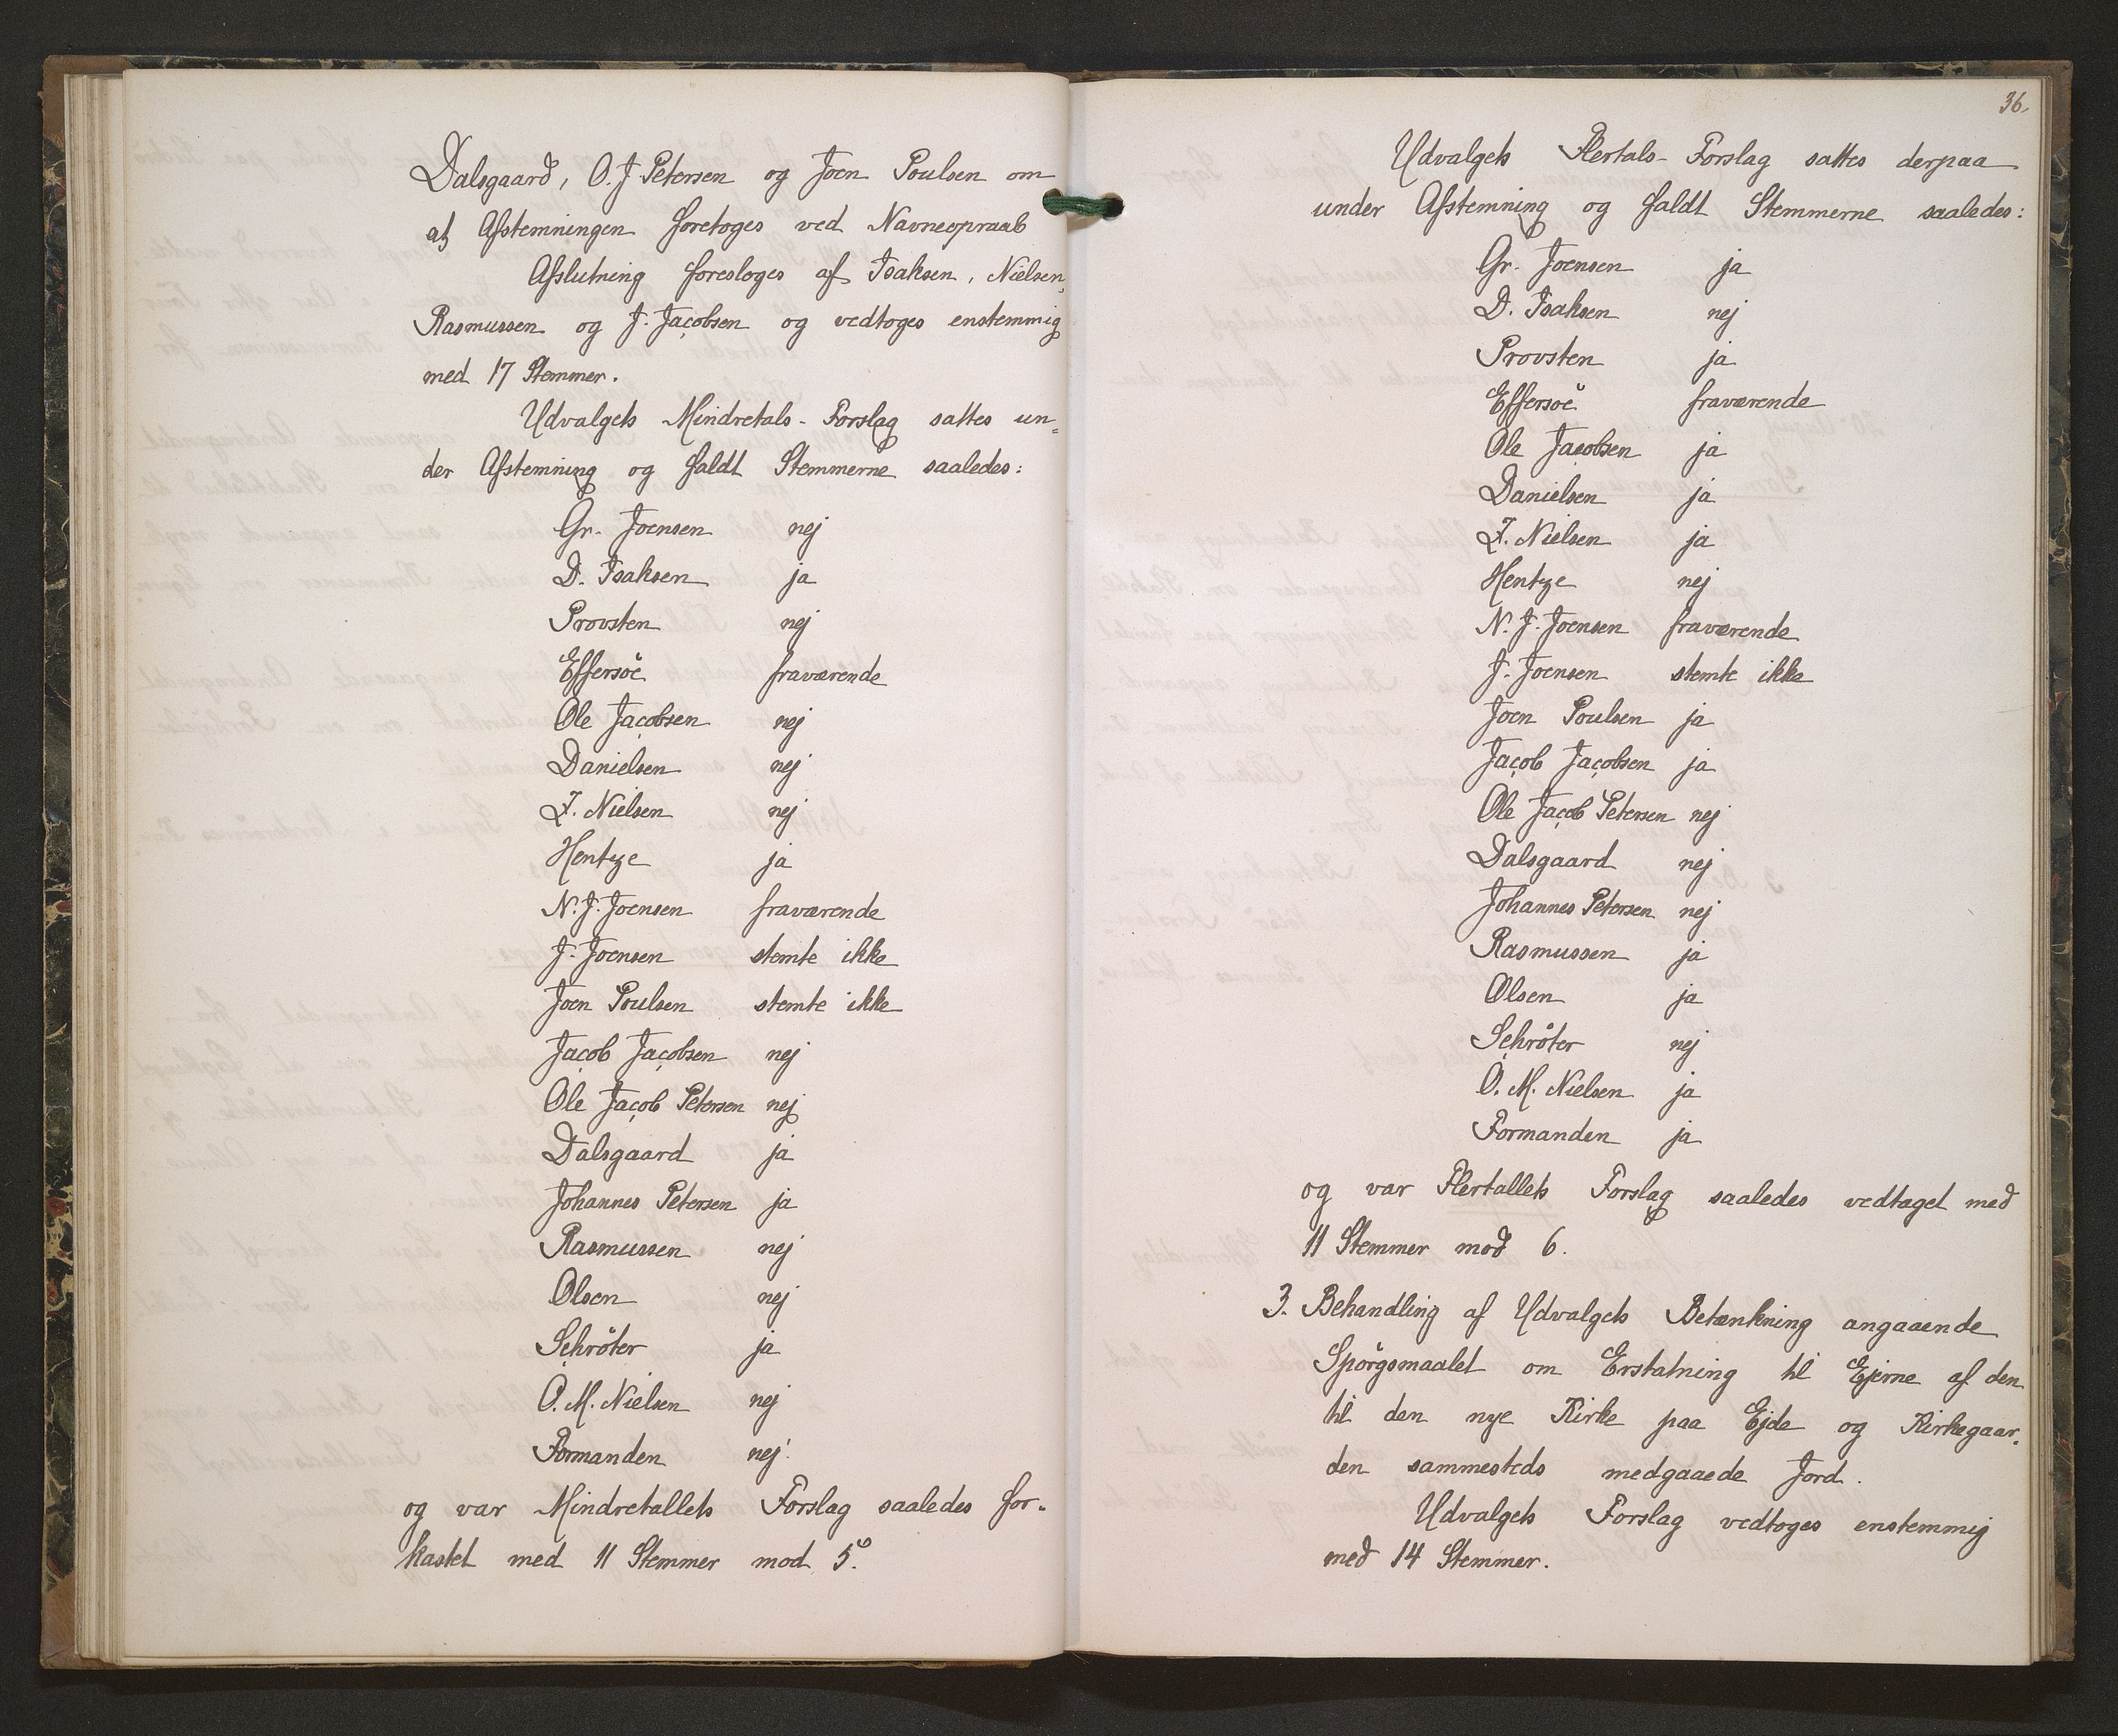 Dalsgaard, O. J. Petersen og Joen Poulsen om
at Afstemningen foretoges ved Navneopraab
Afslutning foresloges af Isaksen, Nielsen,
Rasmussen og J. Jacobsen og vedtoges enstemmig
med 17 Stemmer.
Udvalgets Mindretals-Forslag sattes un-
der Afstemning og faldt Stemmerne saaledes:
Gr. Joensen nej
D. Isaksen ja
Provsten nej
Effersöe fraværende
Ole Jacobsen nej
Danielsen nej
F. Nielsen nej
Hentze ja
N. J. Joensen fraværende
J. Joensen stemte ikke
Joen Poulsen stemte ikke
Jacob Jacobsen nej
Ole Jacob Petersen nej
Dalsgaard ja
Johannes Petersen ja
Rasmussen nej
Olsen nej
Schröter ja
O. M. Nielsen nej
Formanden nej
og var Mindretallets Forslag saaledes for-
kastet med 11 Stemmer mod 5.
36.
Udvalgets Flertals-Forslag sattes derpaa
under Afstemning og faldt Stemmerne saaledes:
Gr. Joensen ja
D. Isaksen nej
Provsten ja
Effersöe fraværende
Ole Jacobsen ja
Danielsen ja
F. Nielsen ja
Hentze nej
N. J. Joensen fraværende
J. Joensen stemte ikke
Joen Poulsen ja
Jacob Jacobsen ja
Ole Jacob Petersen nej
Dalsgaard nej
Johannes Petersen nej
Rasmussen ja
Olsen ja
Schröter nej
O. M. Nielsen ja
Formanden ja
og var Flertallets Forslag saaledes vedtaget med
11 Stemmer mod 6.
3. Behandling af Udvalgets Betænkning angaaende
Spörgsmaalet om Erstatning til Ejerne af den
til den nye Kirke paa Ejde og Kirkegaar-
den sammesteds medgaaede Jord.
Udvalgets Forslag vedtoges enstemmig
med 14 Stemmer.